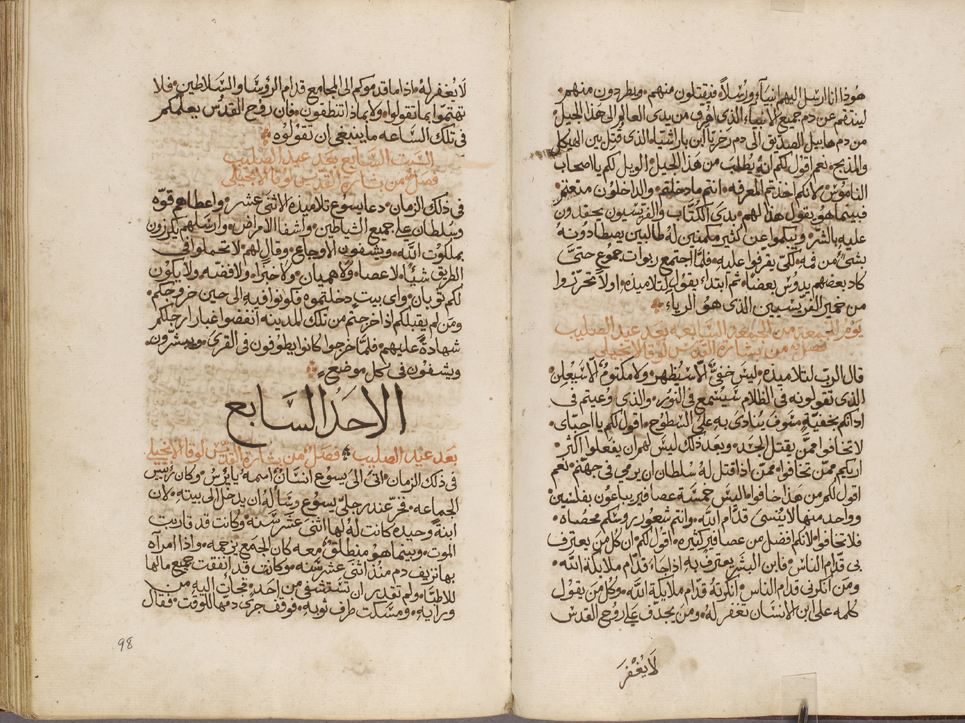 هوذا انا ارسل اليهم انبيآء ورسلاً فيقتلون منهم ويطردون منهم
لينتقم عن دم جميع الانبياء الذى اهرق من بدى العالم الى هذا الجيل
من دم هابيل الصديق الى دم زخريا ابن باراشيا الذى قتل بين الهيكل
والمذبح نعم اقول لكم انه يطلب من هذا الجيل الويل لكم يا اصحاب
الناموس لانكم اخذتم المعرفه انتم ما دخلتم والداخلون منعتم
فبينما هو يقول هذا لهم بدى الكتّاب والفريسيون يحقدون
عليه بالشر ويكلموا عن كثير مكمنين له طالبين يصطادونه
بشئ من فمه لكى يقرفوا عليه فلما اجتمع ربوات جموع حتى
كاد بعضهم يدوس بعضاً ثم ابتدا يقول لتلاميذه اولا تحرزوا
من خمير الفريسيين الذى هو الرياء
يوم الجمعه من الجمعه السابعه بعد عيد الصليب
فصل من بشارة القديس لوقا الانجيلى
قال الرب لتلاميذه ليس خفى الا سيظهر ولا مكتوم الا سيعلن
الذى تقولونه فى الظلام سيسمع فى النور والذى وعيتم فى
اذانكم بخفية سوف ينادى به على السطوح اقول لكم يا احباى
لا تخافوا ممن يقتل الجسد وبعد ذلك ليس لهم ان يفعلوا اكثر
اريكم ممن تخافوا ممن اذا قتل له سلطان ان يرمى فى جهنم نعم
اقول لكم من هذا خافوا اليس خمسة عصافير يباعون بفلسين
وواحد منها لا ينسى قدام الله وانتم شعور روسكم محصاه
فلا تخافوا لانكم افضل من عصافير كثيره اقول لكم ان كل من يعترف
بى قدام الناس فابن البشر يعترف به قدام ملايكة الله
ومن انكرنى قدام الناس انكرته قدام ملايكة الله وكل من يقول
كلمه على ابن الانسان تغفر له ومن يجدف على روح القدس
لا يُغفر
لا يُغفر له واذا ما قدموكم الى المجامع قدام الرؤسا والسلاطين فلا
تهتموا بما تقولوا ولا بماذا تنطقون فان روح القدس يعلمكم
فى تلك الساعه ما ينبغى ان تقولوه
السبت السابع بعد عيد الصليب
فصل من بشارة القديس لوقا الانجيلى
فى ذلك الزمان دعا يسوع تلاميذه الاثنى عشر واعطاهم قوّه
وسلطان على جميع الشياطين واشفا الامراض وارسلهم يكرزون
بملكوت الله ويشفون الاوجاع وقال لهم لا تحملوا فى
الطريق شيئاً لا عصا ولا هميان ولا خبزاً ولا فضه ولا يكون
لكم ثوبان واى بيت دخلتموه فكونوا فيه الى حين خروجكم
ومن لم يقبلكم اذا خرجتم من تلك المدينه انفضوا غبار ارجلكم
شهادة عليهم فلما خرجوا كانوا يطوفون فى القرى ويبشرون
ويشفون فى كل موضع
الاحد السابع
بعد عيد الصليب فصل من بشارة القديس لوقا الانجيلى
فى ذلك الزمان اتى الى يسوع انسان اسمه يايرس وكان رئيس
الجماعه فخر عند رجلى يسوع وسأله ان يدخل الى بيته لان
ابنة وحيده كانت له لها اثنى عشر سنه وكانت قد قاربت
الموت وبينما هو منطلق معه كان الجمع يزحمه واذا امراه
بها نزيف دم منذ اثنى عشر سنه وكانت قد انفقت جميع مالها
للاطبا ولم تقدر ان تستشفى من احد فجات اليه من
ورايه ومسكت طرف ثوبه فوقف جرى دمها للوقت فقال
98